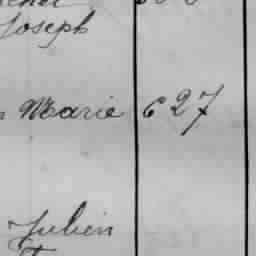 Joseph
Marie 627
Julien